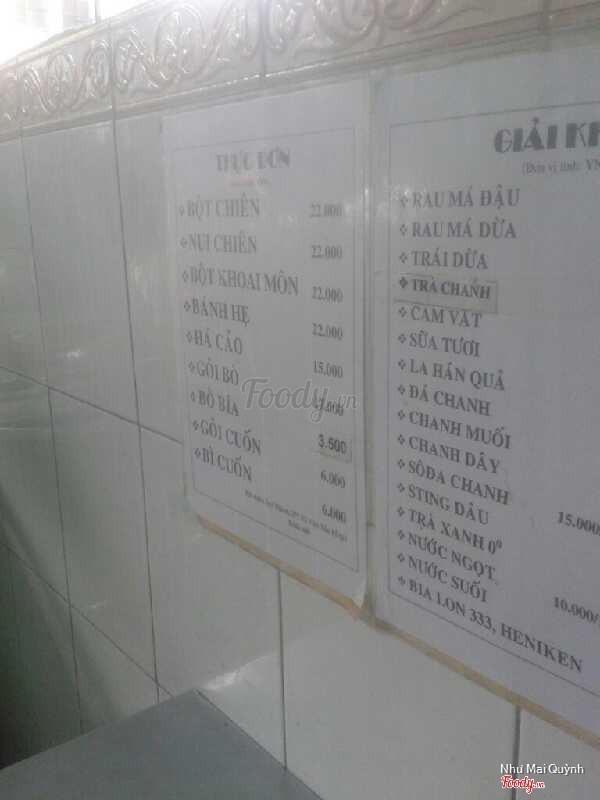 THỰC ĐƠN
BỘT CHIÊN 22.000
NUI CHIÊN 22.000
BỘT KHOAI MÔN 22.000
BÁNH HẸ 22.000
HÁ CẢO 15.000
GỎI BÒ
BÒ BÍA 3.500
GỎI CUỐN 6.000
BÌ CUỐN 6.000
GIẢI KH
(Đơn vị tính: VN
RAU MÁ ĐẬU
RAU MÁ DỪA
TRÁI DỪA
TRÀ CHANH
CAM VẮT
SỮA TƯƠI
LA HÁN QUẢ
ĐÁ CHANH
CHANH MUỐI
CHANH DÂY
SÔĐA CHANH
STING DÂU 15.000/
TRÀ XANH 0⁰
NƯỚC NGỌT
NƯỚC SUỐI 10.000/
BIA LON 333, HENIKEN
Foody.vn
Như Mai Quỳnh
Foody.vn